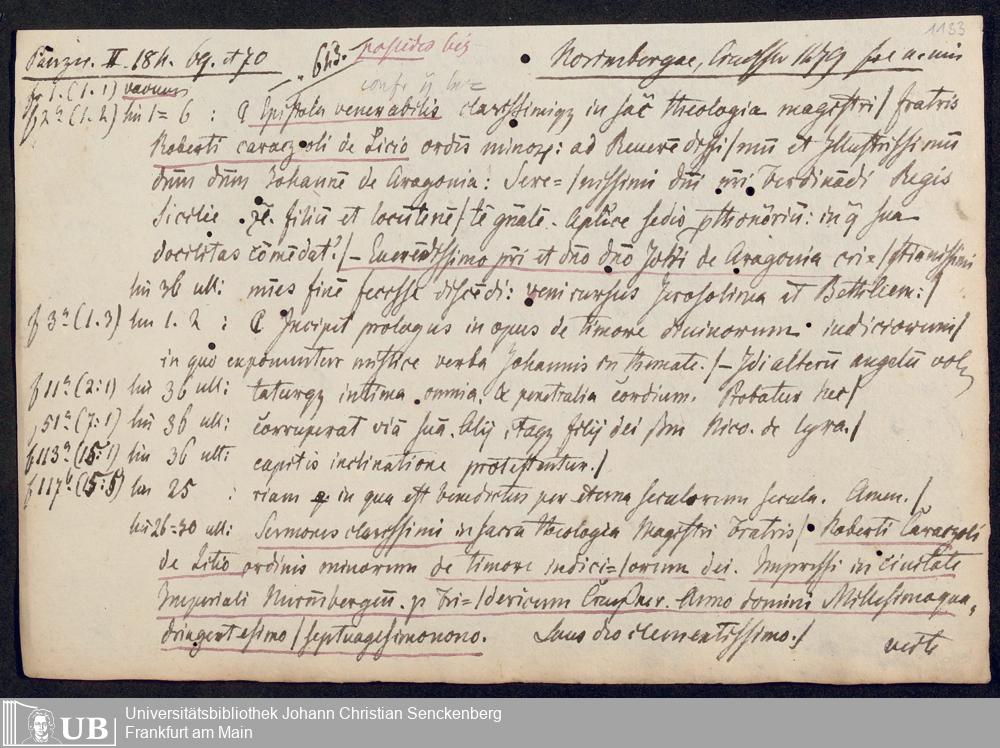 1133
Panzer. II 184. 69. et 70 643. possideo bis Norimbergae, Creussner 1479
f 1. (1. 1) vacuum
f 2ª (1. 2) lin 1= 6 : ❡ Epistola venerabilis clarissimiqz in sac̄ theologia magistri/ fratris
Roberti caraczoli de Licio ordīs minoꝝ: ad Reuerēdissi/mū et Illustrissimū
dn̄m dn̄m Johannē de Aragonia: Sere=/nissimi dn̄i nr̄i Ferdinādi Regis
Sicilie ꝛc̄. filiū et locūtenē/tē gn̄alē. Ap̄lice sedis ꝓthonōriū: in q̄ sua
docilitas cōmēdat᷑/ – Reuerēdissimo pr̄i et dn̄o dn̄o Joh̄i de Aragonia cri=/stianissimi
lin 36 ult: mies finē fecisse discēdi: veni rursus Jerosolima et Bethleem:/
f 3ª (1. 3) lin 1. 2 : ❡ Incipit prologus in opus de timore diuinorum iudiciorum/
in quo exponuntur mistice verba Johannis in themate./ – Idi alterū angelū
f 11ª (2: 1) lin 36 ult: taturqz intima omnia, & penetralia cordium. Probatur hec/
51ª (7: 1) lin 36 ult: corruperat viā suā. Alij filij dei Nico. de lyra./
f 113ª (15: 1) lin 36 ult: capitis inclinatione protestentur./
f 117ᵇ (15: 5) lin 25 : riam in qua est benedictus per eterna seculorum secula. Amen./
lin 26=30 ult: Sermones clarissimi in sacra theologia Magistri Fratris/ Roberti Caraczoli
de Litio ordinis minorum de timore iudici=/orum dei. Impressi in ciuitate
Imperiali Nurm̄bergen̄. p Fri=/dericum Creuszner. Anno domini Millesimoqua=
dringentesimo/septuagesimonono. Laus deo clementissimo./
verte
UB Universitätsbibliothek Johann Christian Senckenberg
Frankfurt am Main